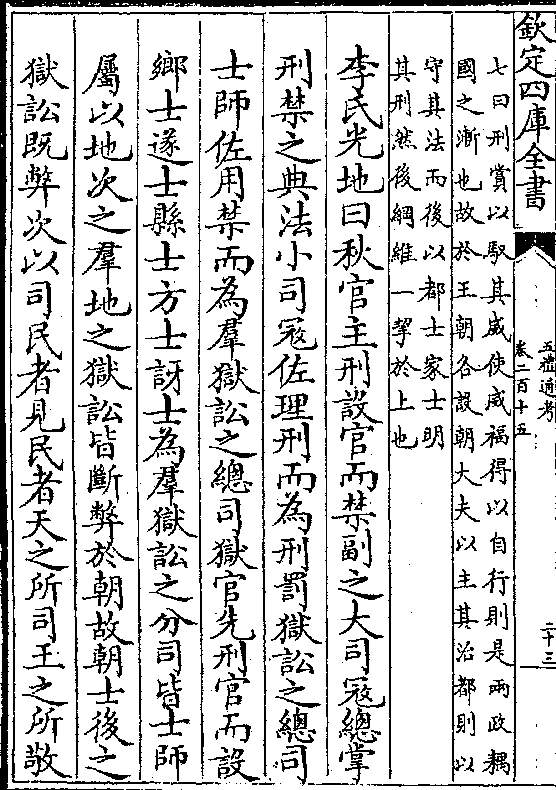 欽定四庫全書
五禮通考
卷二百十五
二十三
七曰刑賞以馭其威使威福得以自行則是兩政耦
國之漸也故於王朝各設朝大夫以主其治都則以
守其法而後以都士家士明
其刑然後綱維一挈於上也
李氏光地曰秋官主刑設官而禁副之大司寇總掌
刑禁之典法小司寇佐理刑而為刑罰獄訟之總司
士師佐用禁而為羣獄訟之總司獄官先刑官而設
鄉士遂士縣士方士訝士為羣獄訟之分司皆士師
屬以地次之羣地之獄訟皆斷弊於朝故朝士後之
獄訟既弊次以司民者見民者天之所司王之所敬